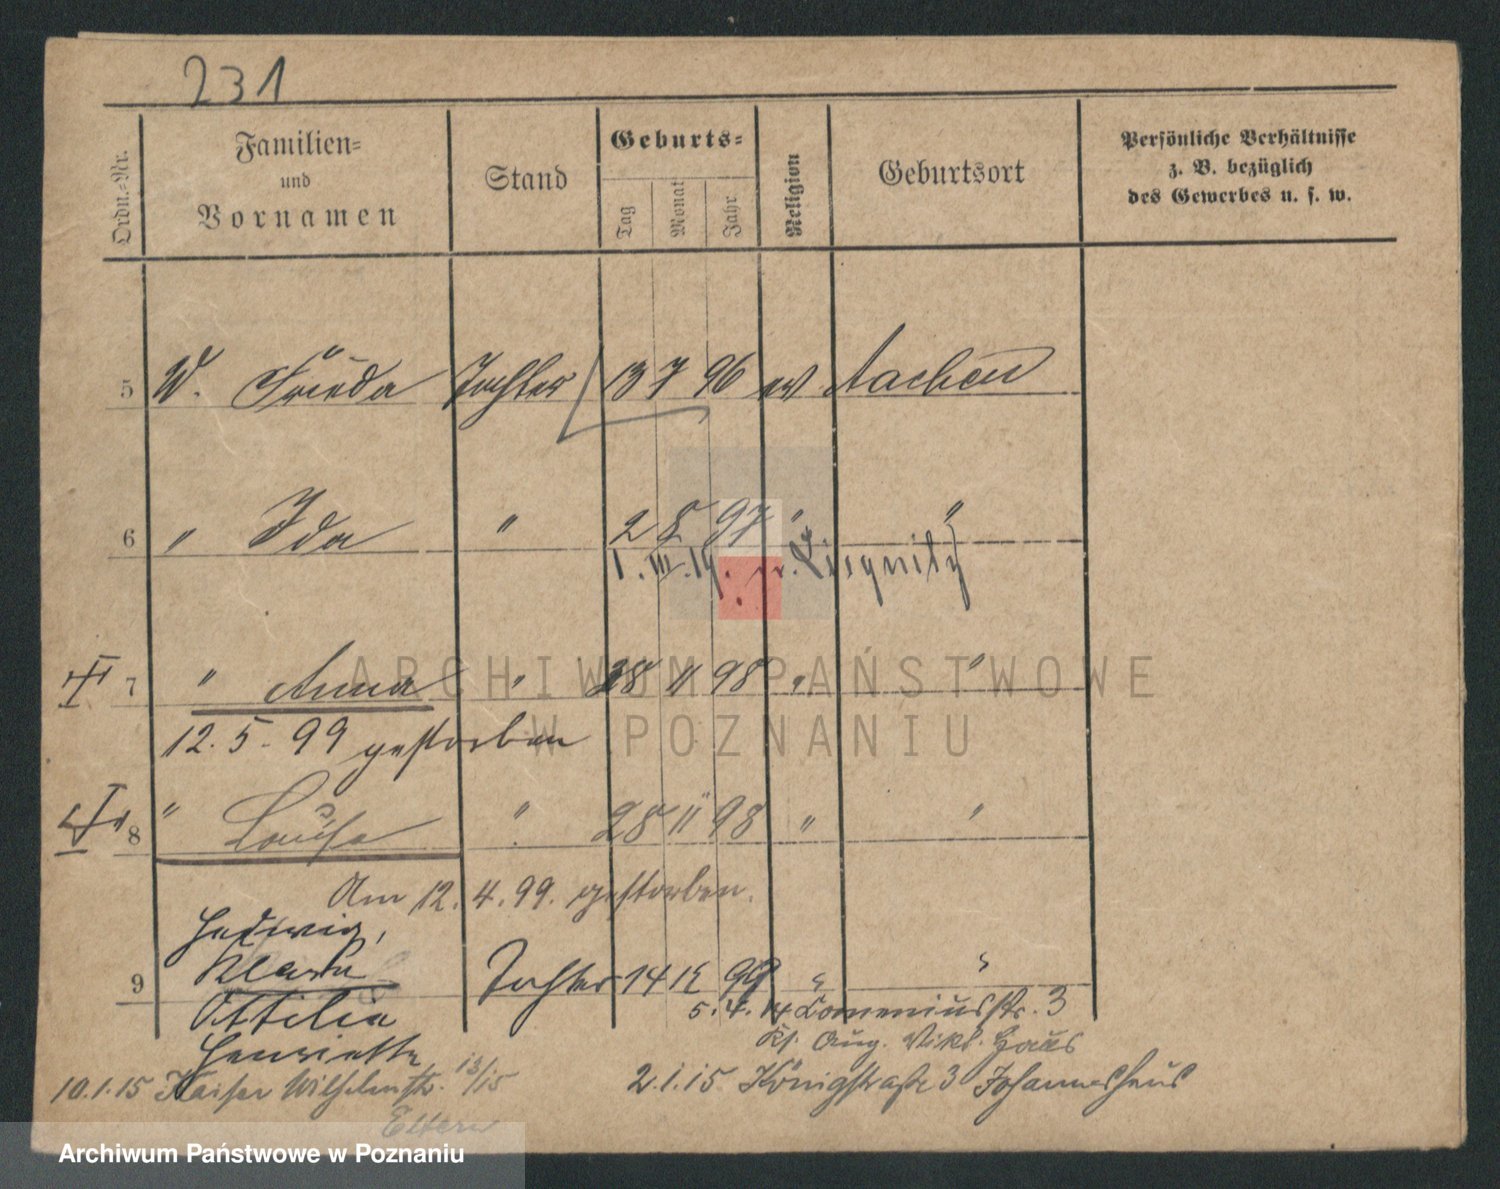 231
Ordn.-Nr.
Familien-
und
Vornamen
Stand
Geburts-
Tag
Monat
Jahr
Religion
Geburtsort
Persönliche Verhältnisse
z. B. bezüglich
des Gewerbes u. s. w.
5 W. Frieda Tochter 13 7 96 ev Aachen
6 " Ida " 2 8 97 " "
1. III. 14. Liegnitz
7 " Anna " 28 11 98 " "
12. 5. 99 gestorben
8 " Louise " 28 11 98 " "
Am 12. 4. 99. gestorben.
Hedwig,
9 Klara Tochter 14 12 99 " "
Ottilia 5. 4. 14 Comeniusstr. 3
Henriette Aug. Vikt. Haus
10.1.15 Kaiser Wilhelmstr. 13/15 2.1.15. Königstraße 3 Johanneshaus
Eltern
ARCHIWUM PAŃSTWOWE
W POZNANIU
Archiwum Państwowe w Poznaniu